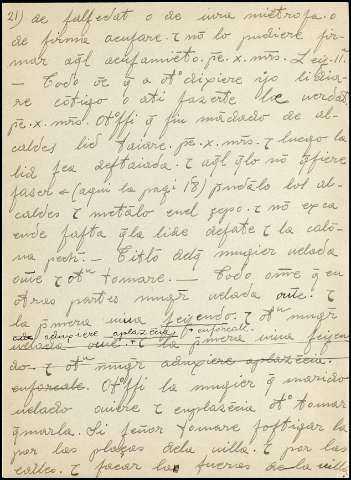 21) de falsedat o de iura metrosa. o
de firma acusare. τ no lo pudiere fir-
mar aql acusamieto. pe. x. mrs. Ley. II.
— Todo oe q a ot° dixiere yo lidia-
re cotigo o ati fazerte he verdat
pe. x. mrs. Otossi q sin madado de al-
caldes lid taiare. pe. x. mrs. τ luego la
lid sea destaiada. τ aql qlo no qsiere
faser (aqui la pagi 18) pndalo los al-
caldes τ metalo enel çepo. τ no exca
ende fasta q la lide desate τ la calo-
na peche. — Titlo delq mugier velada
ouie τ ot^a tomare. — Todo ome q en
otras partes mugr velada ouie. τ
la pmera viua seyendo. τ ot^a mugr
aduxiere aplazecia enforcale.
velada ouie. τ la pmera viua seyen
do. τ ot^a mugr aduxiere aplazecia.
enforcale. Otossi la mugier q marido
velado ouiere τ enplazecia ot° tomar
qmarla. Si señor tomare fostigar la
por las plaças dela villa. τ por las
calles. τ sacar la fueras de la villa